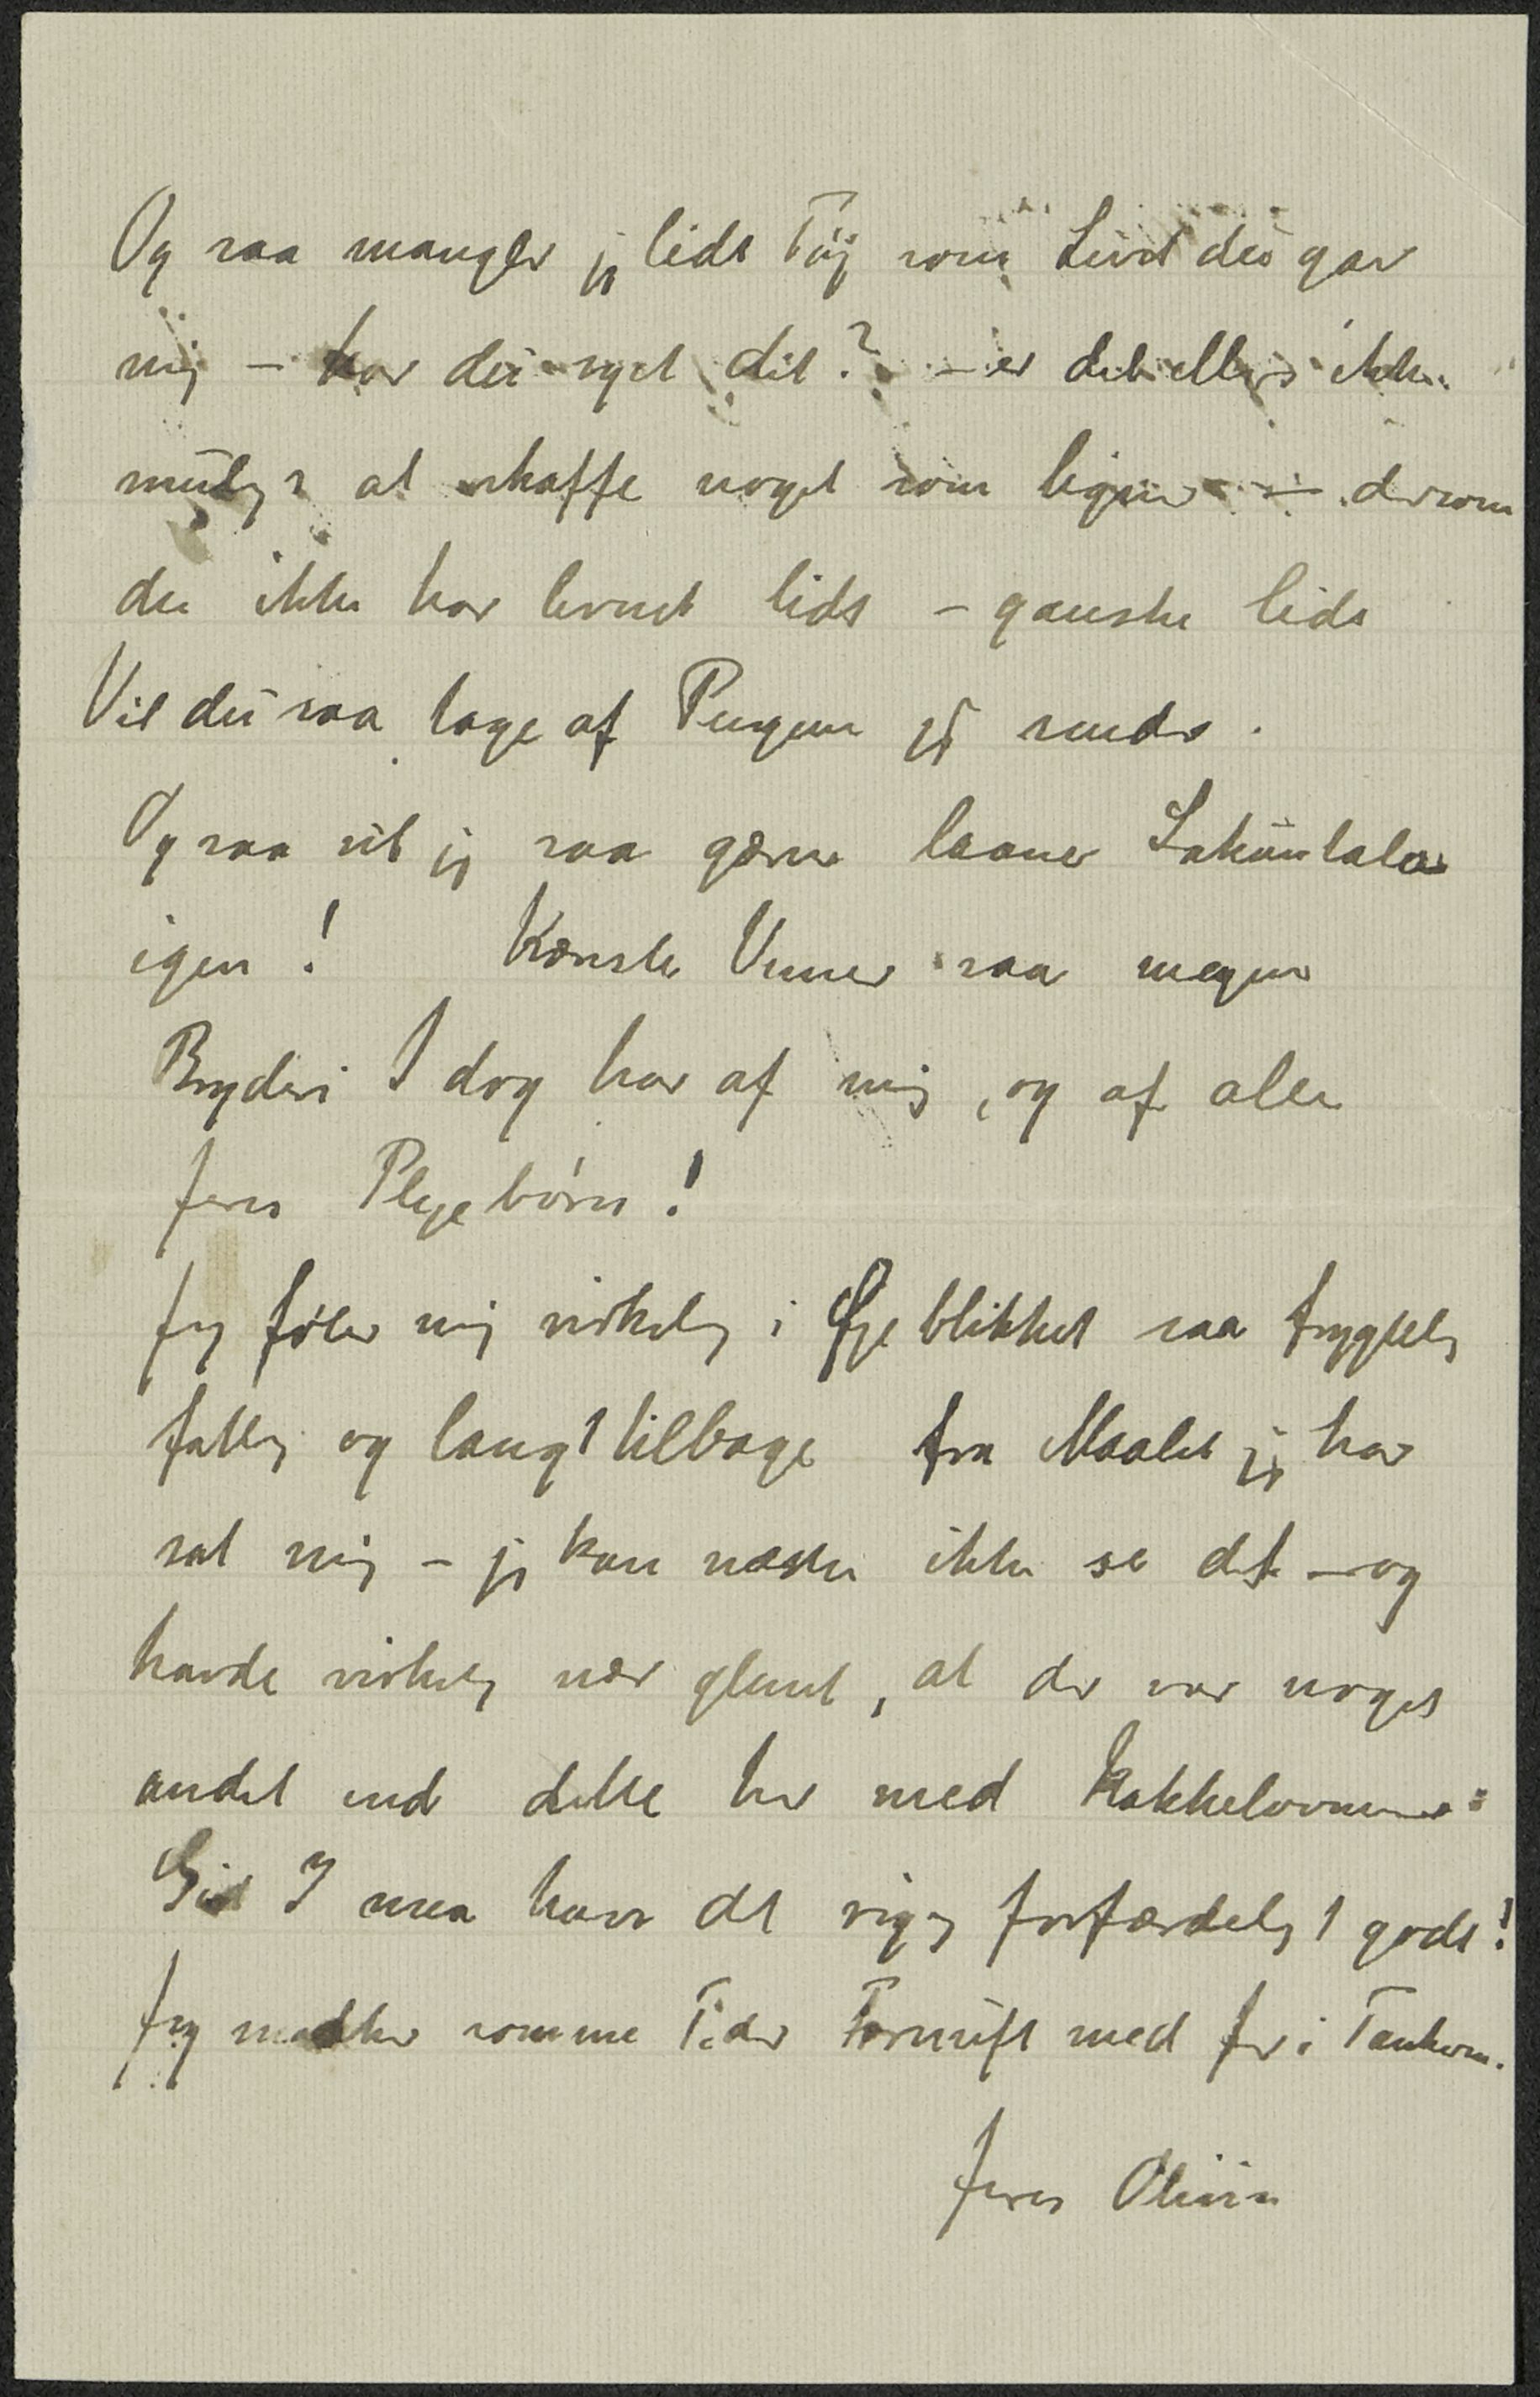 Og saa mangler jeg lidt Tøj som du gav
mig – har du syet dit? – er det ellers ikke
muligt at skaffe noget som ligner – dersom
du ikke har levnet lidt – ganske lidt
Vil du saa tage af Pengene jeg sender.
Og saa vil jeg saa gærne laane Sakuntala
igen! Kæreste Venner saa megen
Bryderi I dog har af mig, og af alle
Jeres Plejebørn!
Jeg føler mig virkelig i Øjeblikket saa frygtelig
fattig og langt tilbage fra Maalet jeg har
sat mig – jeg kan næsten ikke se det – og
havde virkelig nær glemt, at der var noget
andet end dette her med Kakkelovnene
Gid I maa have det rigtig forfærdeligt godt!
Jeg snakker somme Tider Fornuft med Jer i Tankerne.
Jeres Olivia